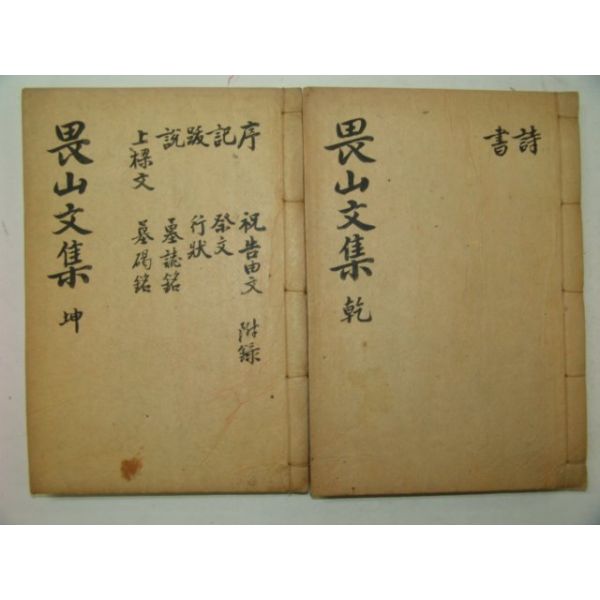 詩
書
畏山文集 乾
序 祝告由文 附錄
記 祭文
跋 行狀
說 墓誌銘
上樑文 墓碣銘
畏山文集 坤